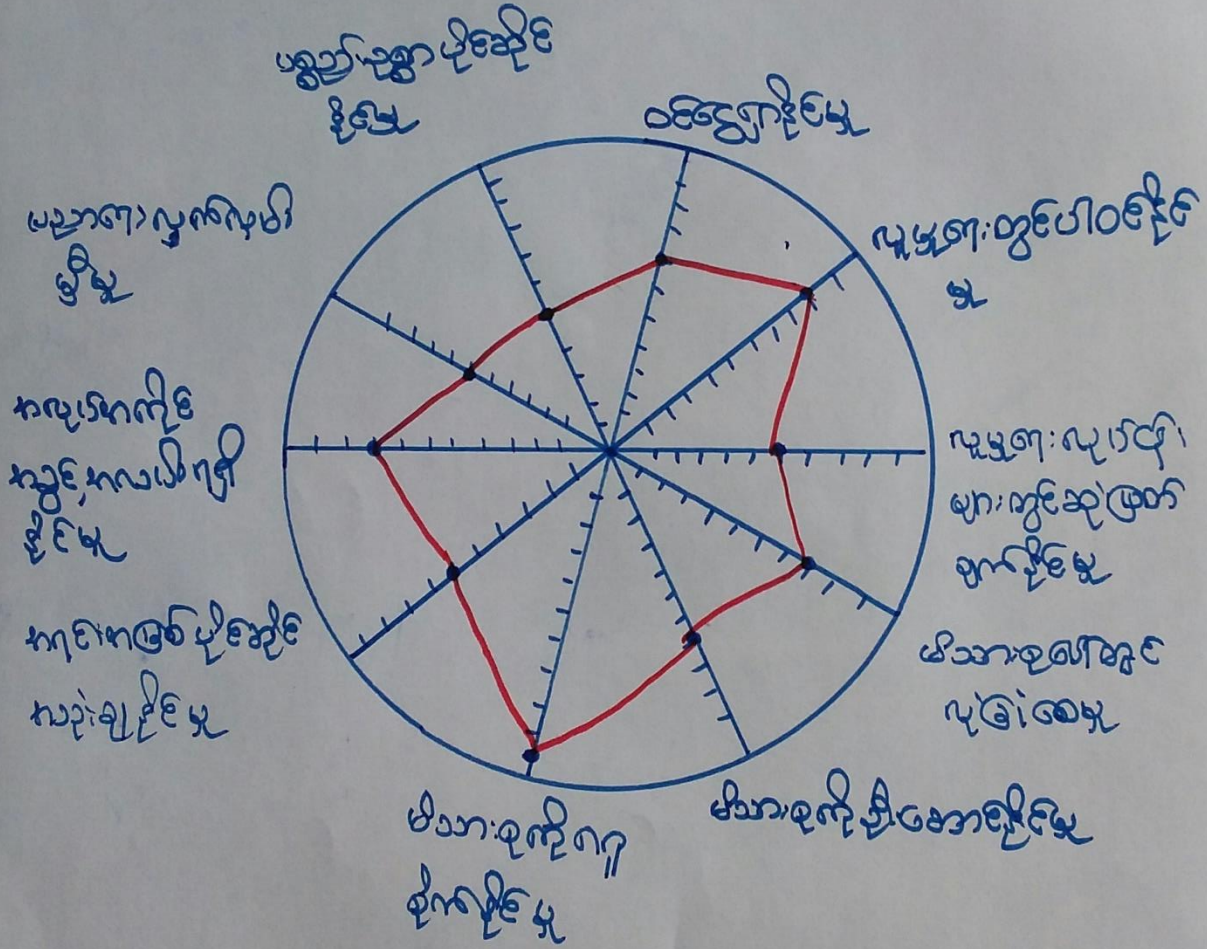 ပစ္စည်းဥစ္စာ ပိုင်ဆိုင်
နိုင်မှု
ဝင်ငွေရှာနိုင်မှု
လူမှုရေးတွင်ပါဝင်နိုင်
မှု
လူမှုရေးလုပ်ငန်း
များတွင်ဆုံးဖြတ်
ချက်နိုင်မှု
မိသားစုဝေတွင်
လုံခြုံစေမှု
မိသားစုကိုဦးဆောင်နိုင်မှု
မိသားစုကိုဂရု
စိုက်နိုင်မှု
အရင်းအမြစ် ပိုင်ဆိုင်
သုံးချနိုင်မှု
အလုပ်အကိုင်
အခွင့်အလမ်းရရှိ
နိုင်မှု
ပညာရေးလွတ်လပ်
မှု